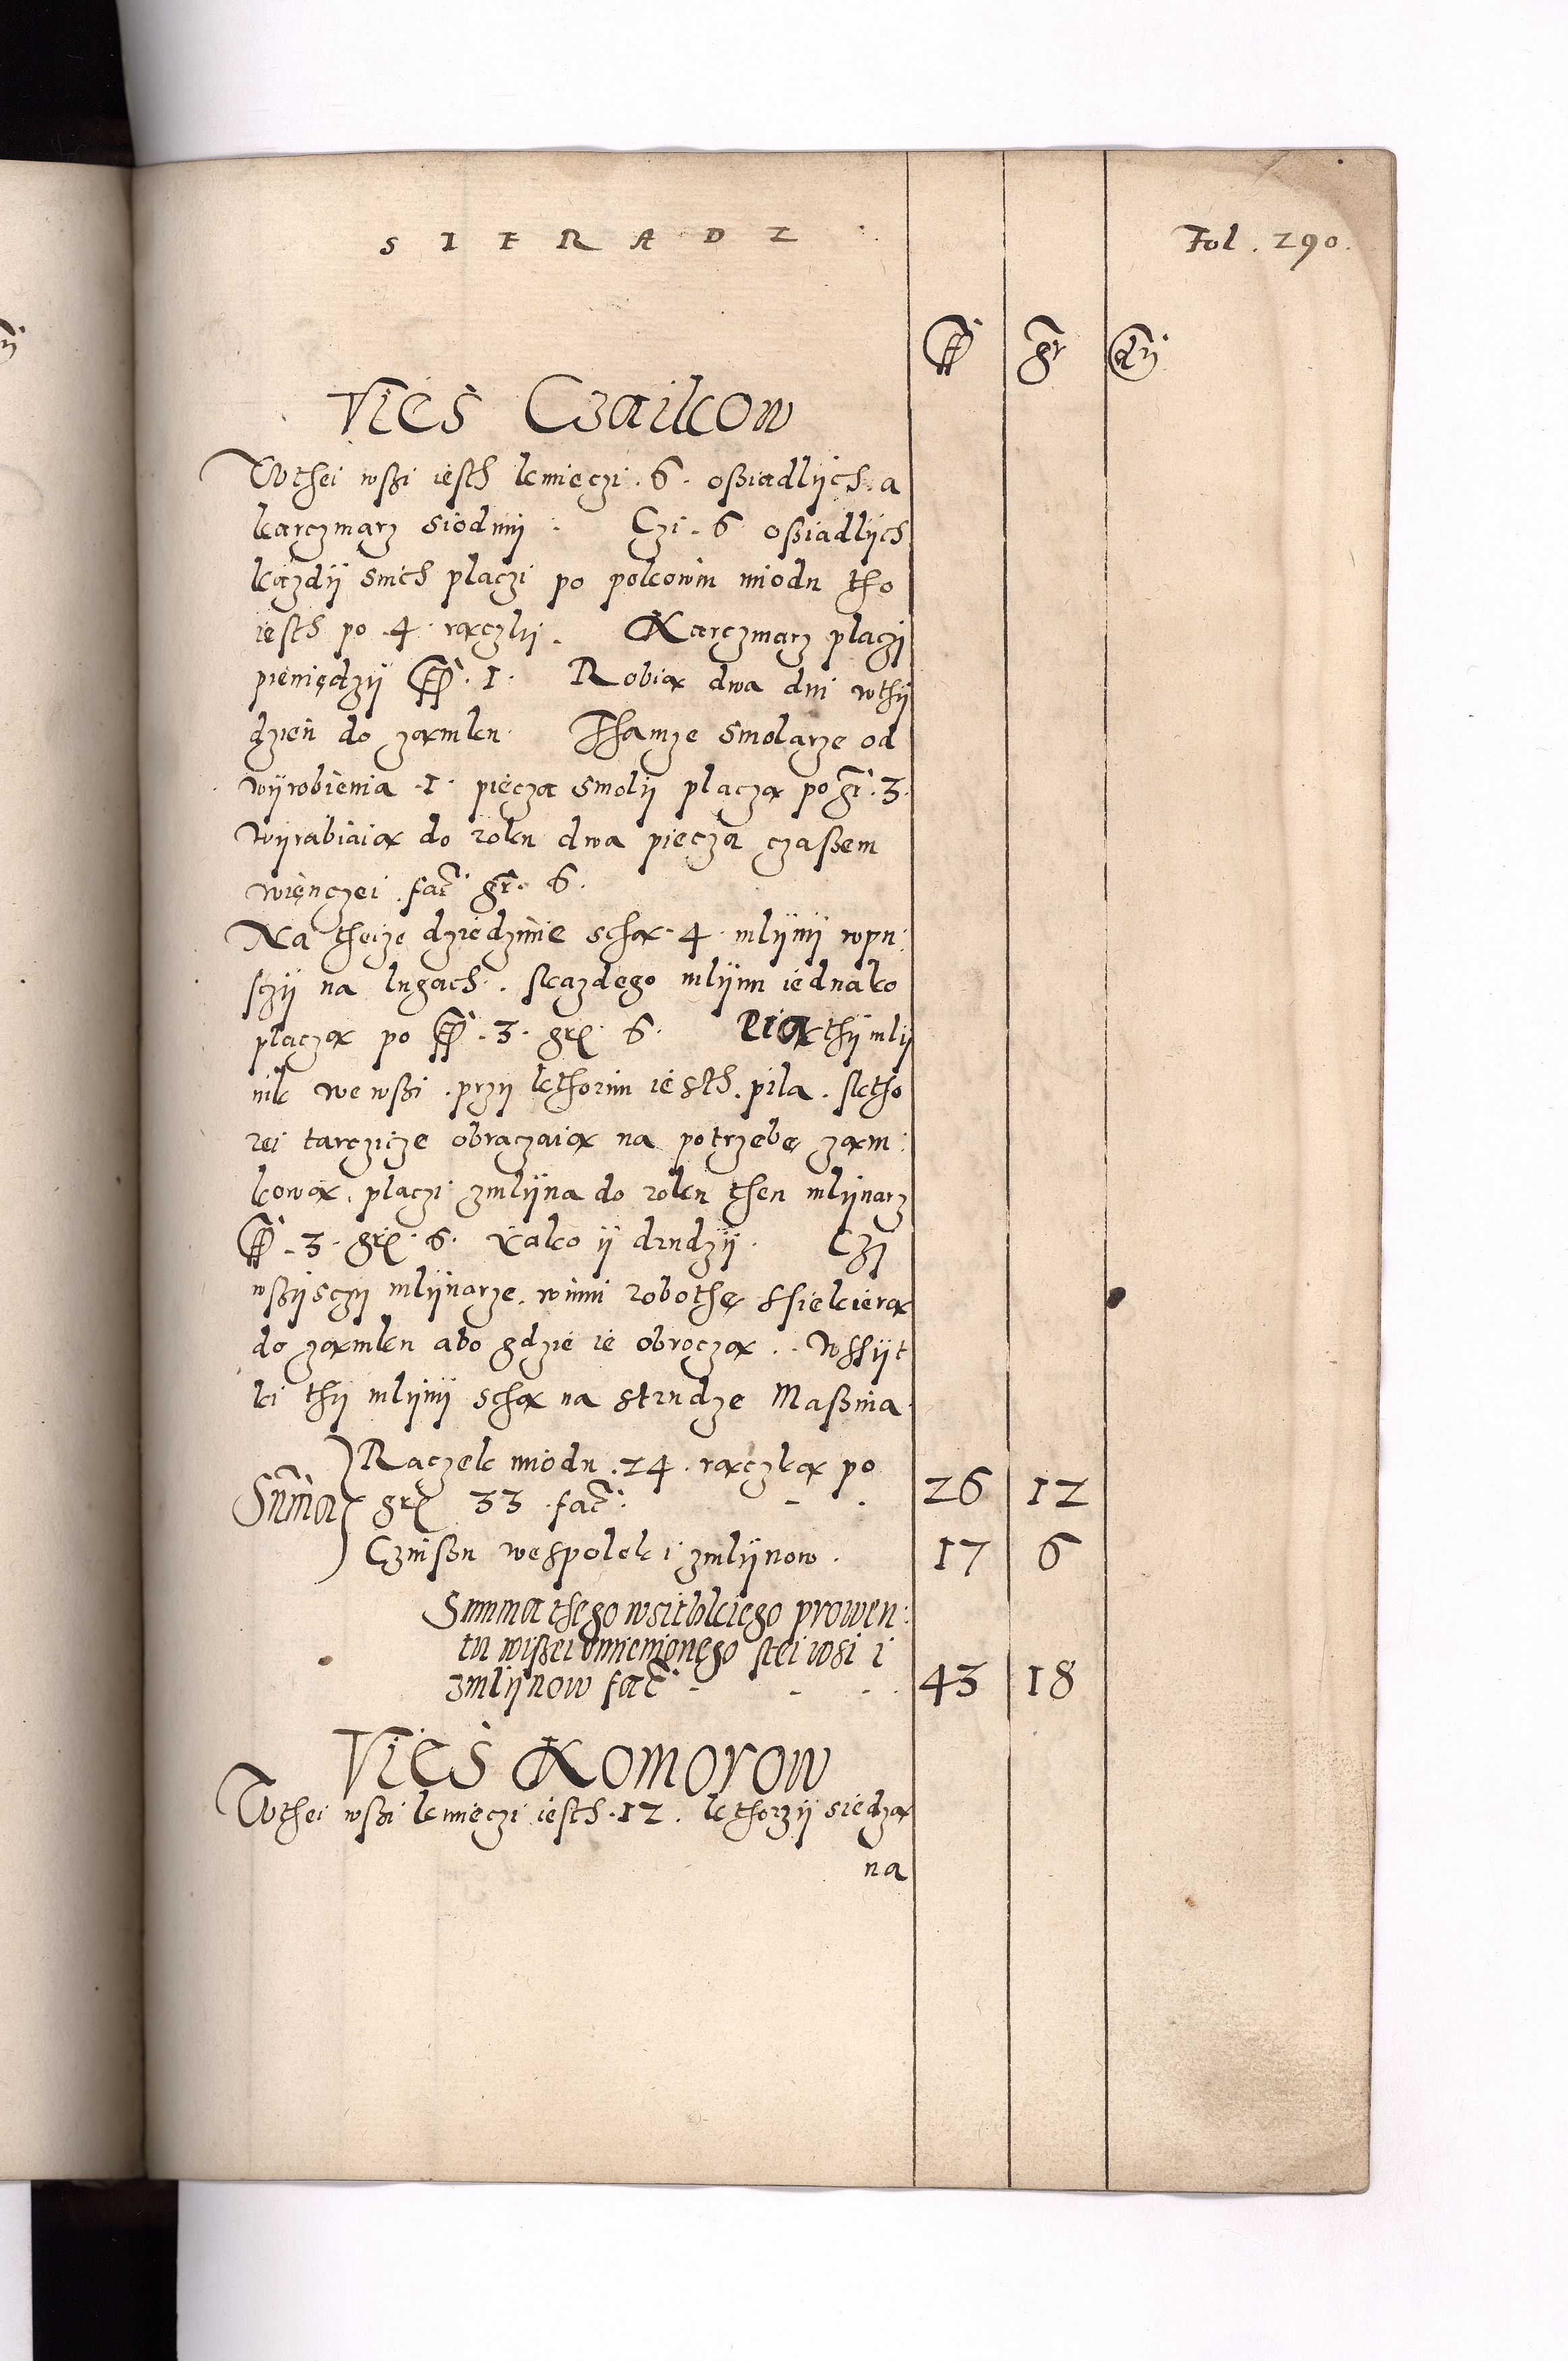 SIERADZ
Fol. 290.
fl gr dn
Vies Czaikow
W thei wßi iesth kmieczi . 6 . oßiadlÿch . a
karczmarz siodmÿ . Czi . 6 oßiadlÿch
kazdÿ snich placzi po polcowiu miodu tho
iesth po . 4 . rączkÿ . Karczmarz placzi
pieniędzÿ fl . 1 . Robią dwa dni wthÿ
dzien do zamku . Thamze Smolarze od
wÿrobienia . 1 . piecza smolÿ placzą po gr . 3 .
wÿrabiaią do roku dwa piecza czaßem
więnczei . fac. gr . 6 .
Na theize dziedzinie schą . 4 . mlÿnÿ wpu:
sczÿ na lugach . skazdego mlÿnu iednako
placzą po fl . 3 . grß . 6 . Piąthÿ mlÿ
nik we wßi . przÿ kthorim iesth . pila . sktho
rei tarczicze obraczaią na potrzebę zam:
kową . placzi zmlÿna do roku then mlÿnarz
fl . 3 . grß . 6 . Yako ÿ drudzÿ . Czi
wßÿsczÿ mlÿnarze . winni robothę ssiekierą
do zamku abo gdzie ie obroczą . . Wssÿt
ki thÿ mlÿnÿ schą na strudze Maßina
Suma Raczek miodu . 24 . rączką po
grß 33 . fac. - . 26 12
Czinßu wespolek i zmlÿnow . 17 6
Summa thego wsitkkiego prowen:
tu wißei omienionego stei wsi i
zmlÿnow fac. - - . 43 18
Vies Komorow
W thei wßi kmieczi iesth . 12 . kthorzÿ siedzą
na